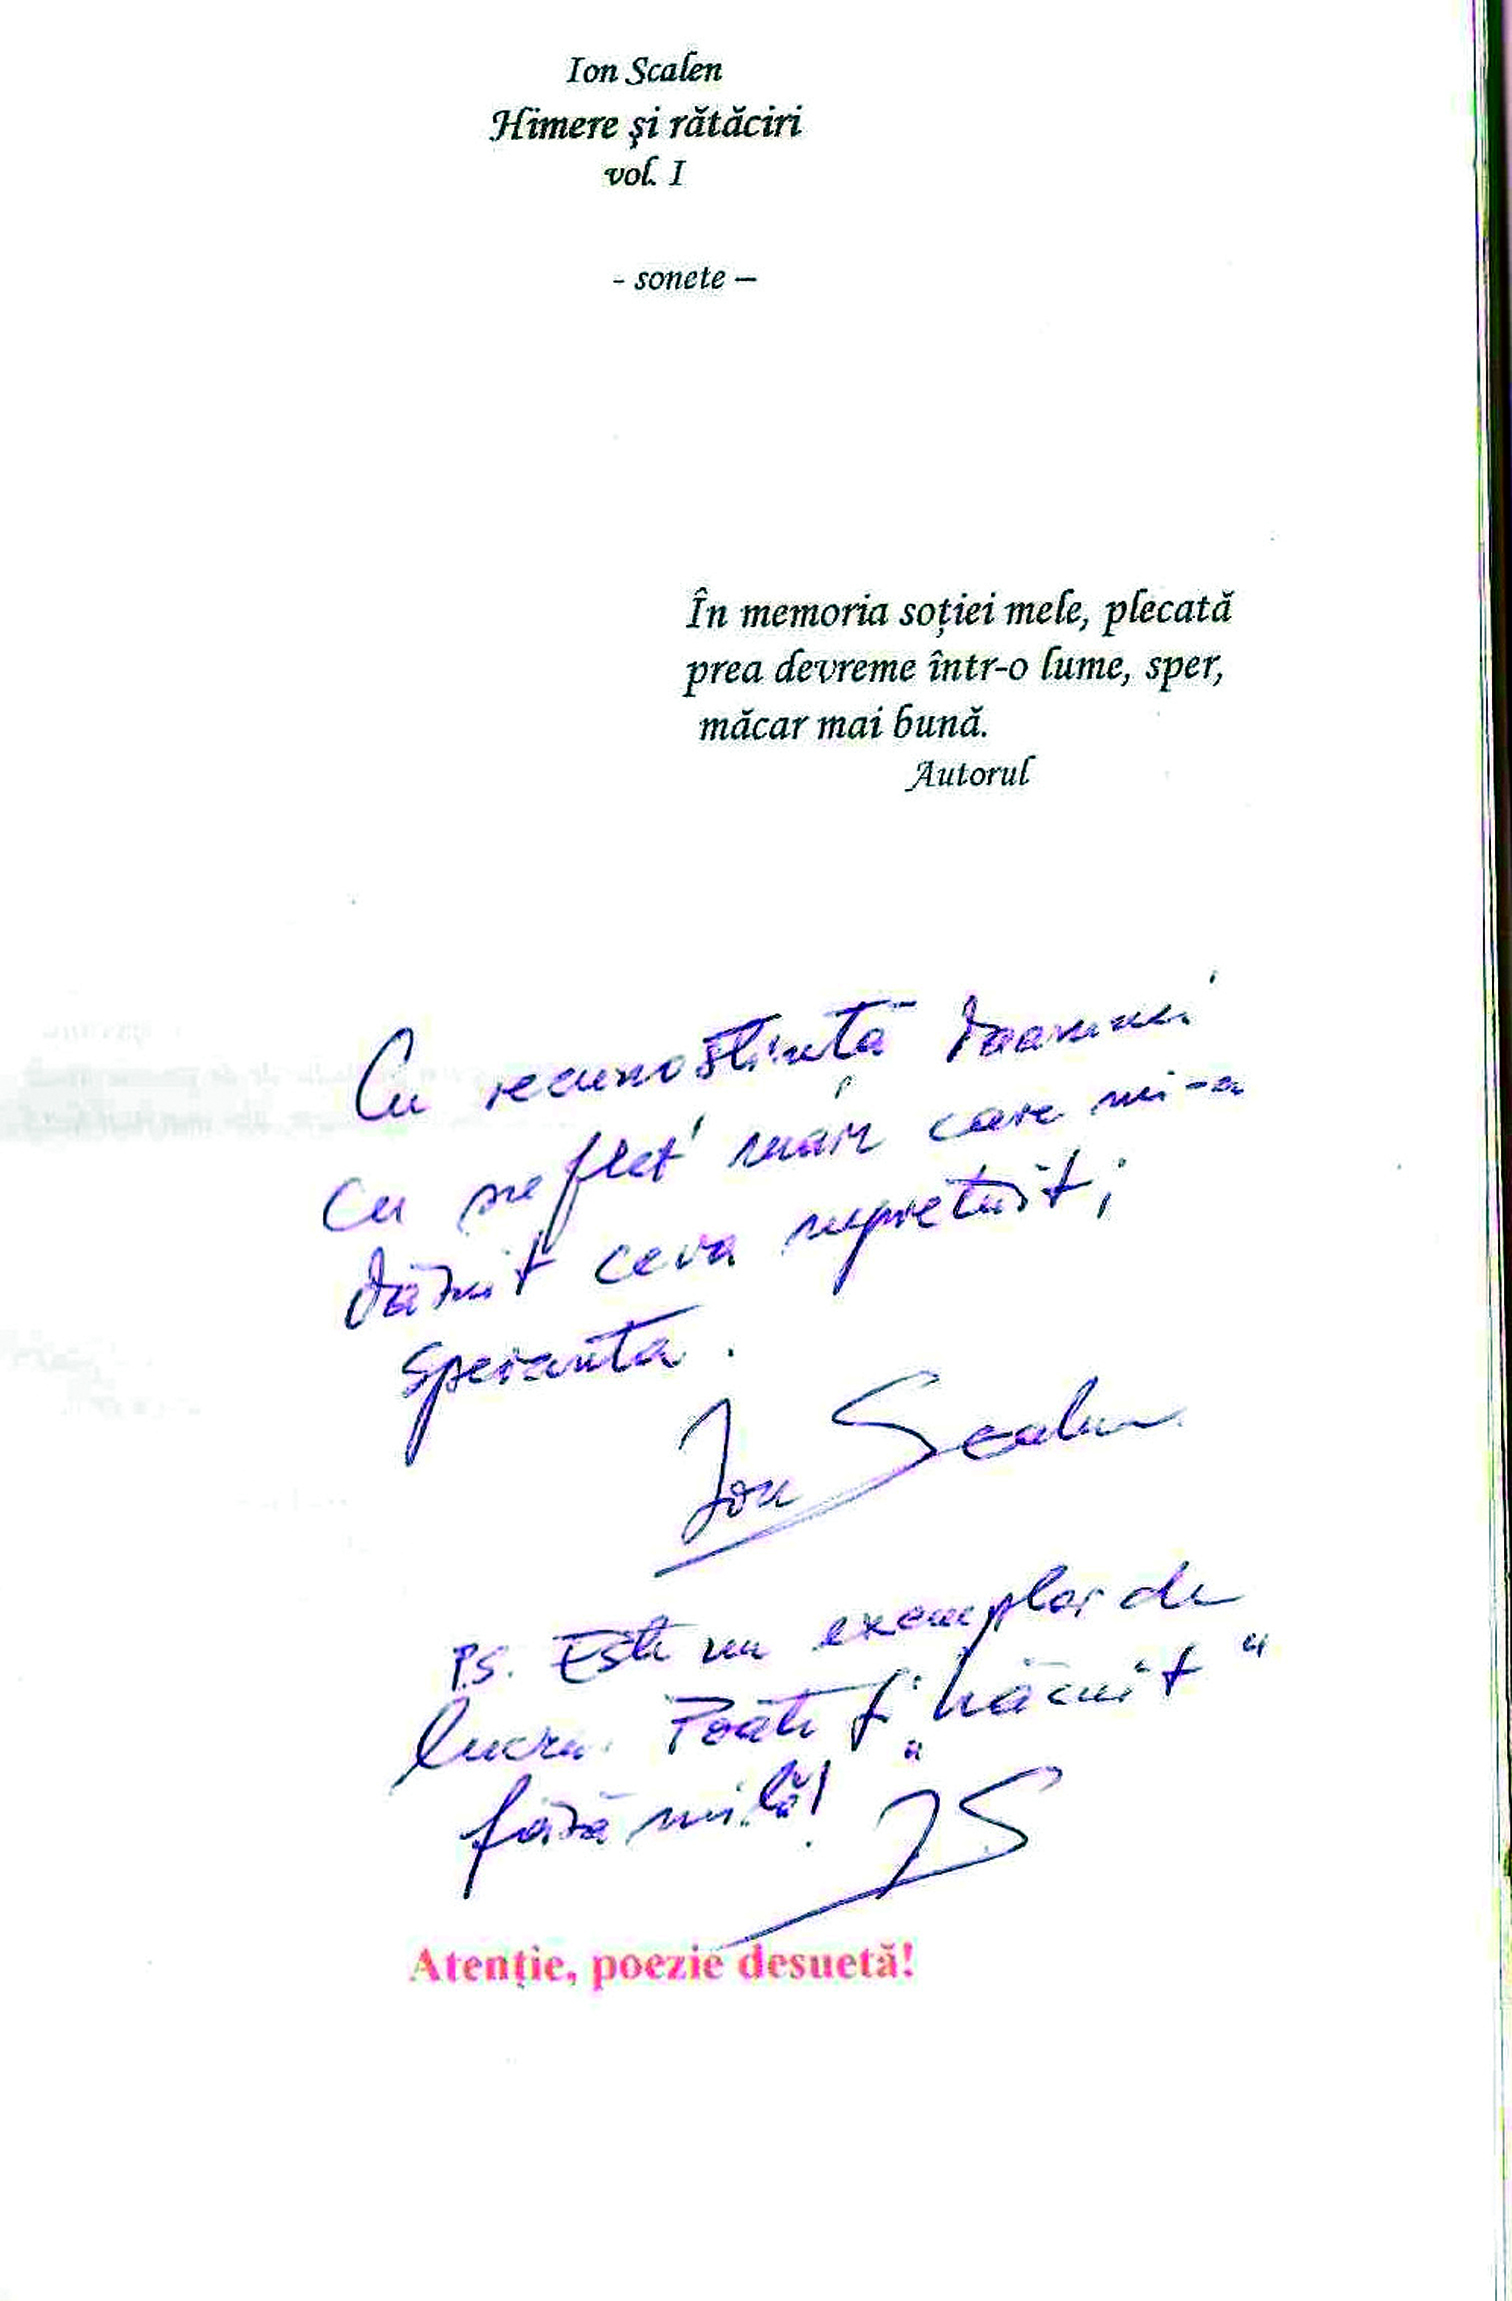 Ion Scalen
Himere şi rătăciri
vol. I
- sonete –
În memoria soţiei mele, plecată
prea devreme într-o lume, sper,
măcar mai bună.
Autorul
Cu recunoştinţă Doamnei
cu suflet mare care mi-a
dăruit ceva nepreţuit;
Speranţa.
Ion Scalen
P.S. Este un exemplar de
lucru. Poate fi "hăcuit"
fără milă!
IS
Atenţie, poezie desuetă!